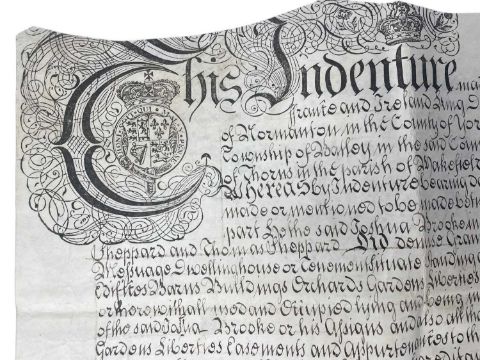 This Indenture ma
France and Ireland King D
of Normanton in the County of Yor
Township of Batley in the said Coun
of Thorns in the parish of Wakefiel
Whereas by Indenture bearing da
made or mentioned to be made betw
part He the said Joshua Brooke
Sheppard and Thomas Sheppard Did demise Gran
Messuage Dwellinghouse or Tenement situate standing a
Edifices Barns Buildings Orchards Gardens Liberties
or therewithall used and Occupied lying and being
of the said Joshua Brooke or his Assigns and also all th
Gardens Liberties Easements and Appurtenances to th